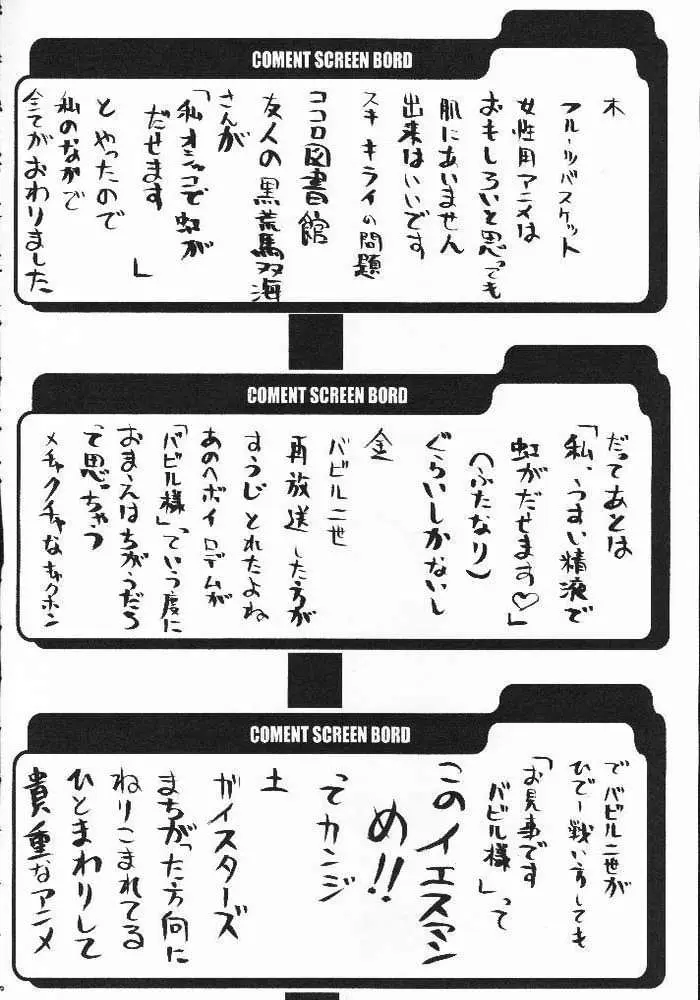 COMENT SCREEN BORD
木
フルーツバスケット
女性用アニメは
おもしろいと思っても
肌にあいません
出来はいいです
スキキライの問題
ココロ図書館
友人の黒荒馬双海
さんが
「私オシッコで虹が
だせます
」
とやったので
私のなかで
全てがおわりました
COMENT SCREEN BORD
だってあとは
「私、うすい精液で
虹がだせます♡」
(ふたなり)
ぐらいしかないし
金
バビルニ世
再放送した方が
すうじとれたよね
あのヘボイロデムが
「バビル様」っていう度に
おまえはちがうだろ
て思っちゃう
メチャクチャなキャクホン
COMENT SCREEN BORD
でバビルニ世が
ひでー戦い方しても
「お見事です
バビル様」って
このイエスマン
め!!
ってカンジ
土
ガイスターズ
まちがった方向に
ねりこまれてる
ひとまわりして
貴重なアニメ